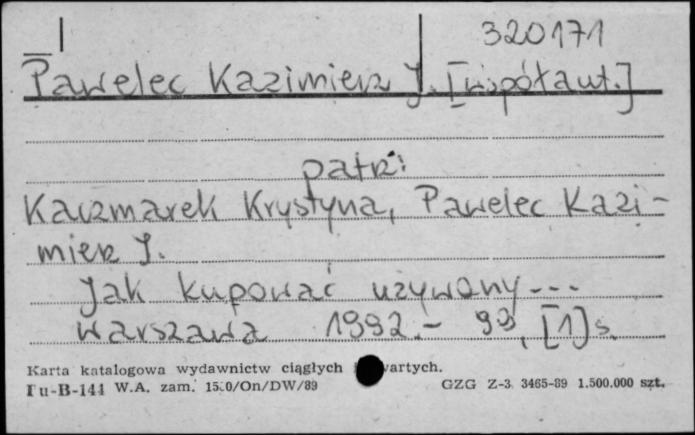 320171
Pawelec Kazimierz J. [współaut.]
patrz:
Kaczmarek Krystyna, Pawelec Kazi-
mierz J.
Jak kupować używany ---
Warszawa 1992.- 99, [1] s.
Karta katalogowa wydawnictw ciągłych wartych.
Pu-B-144 W.A. zam. 15.0/On/DW/89 GZG Z-3 3465-89 1.500.000 szt.